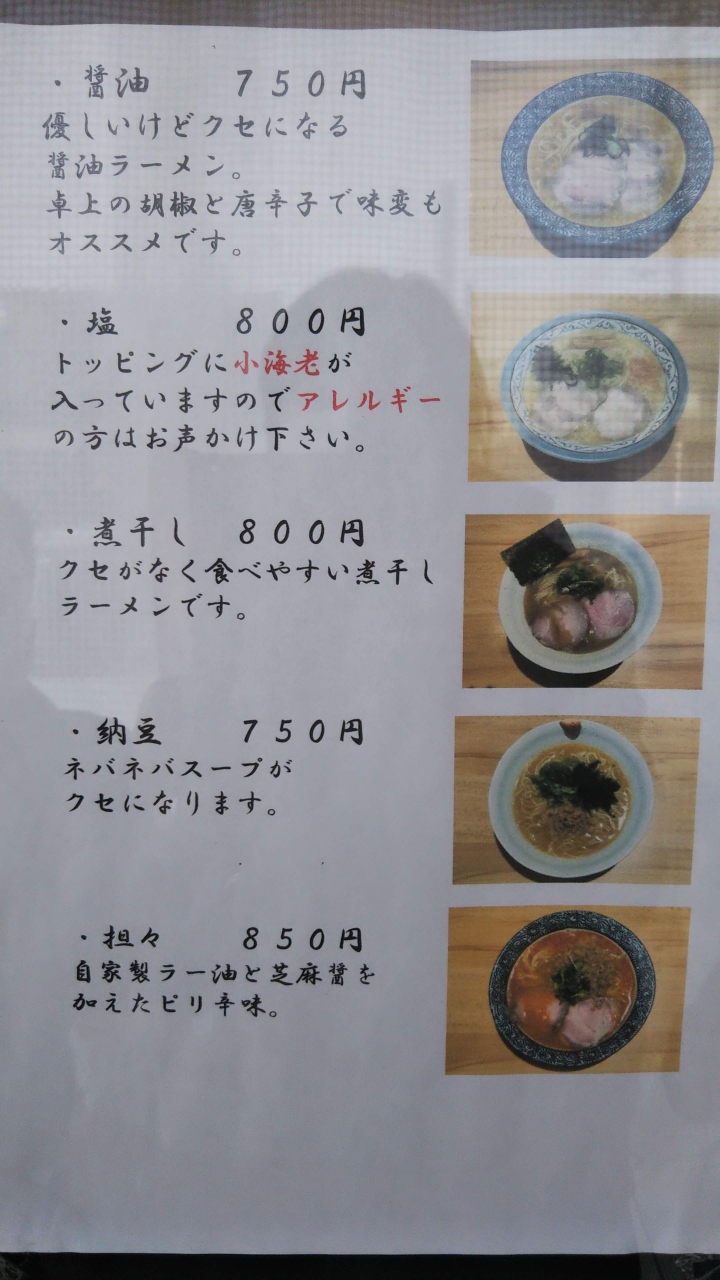 ・醤油　７５０円
優しいけどクセになる
醤油ラーメン。
卓上の胡椒と唐辛子で味変も
オススメです。
・塩　８００円
トッピングに小海老が
入っていますのでアレルギー
の方はお声かけ下さい。
・煮干し　８００円
クセがなく食べやすい煮干し
ラーメンです。
・納豆　７５０円
ネバネバスープが
クセになります。
・担々　８５０円
自家製ラー油と芝麻醤を
加えたピリ辛味。